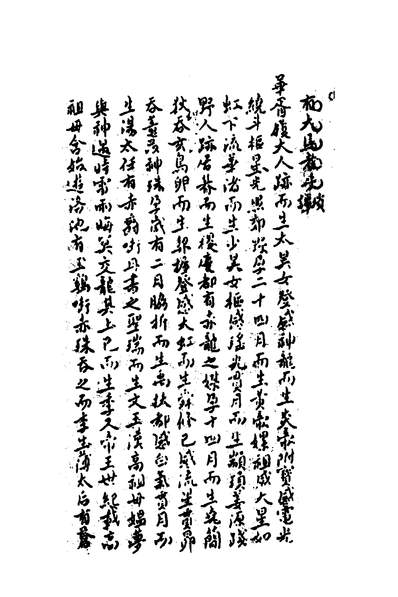 華胥履大人跡而生太昊女登感神龍而生炎帝附寶感電光
繞斗樞星光照郊孕二十四月而生黃帝嫘祖感大星如
虹下流華渚而生少昊女樞感瑤光貫月而生顓頊姜源踐
野人跡居然而生稷慶都有赤龍之祥孕十四月而生堯簡
狄吞玄鳥卵而生契握登感大虹而生舜修己感流星貫昴
吞薏苡神珠孕歲有二月脇折而生禹扶都感白氣貫月而
生湯太任有赤銜丹書之聖瑞而生文王漢高祖母媼夢
與神遇時雷雨晦冥交龍其上已而生季又帝王世紀載高
祖母含始遊洛池有玉鷄銜赤珠吞之而季生薄太后有蒼